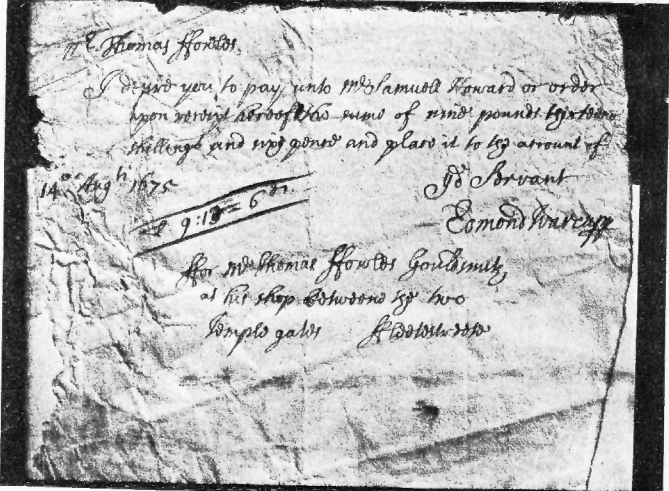 Mr. Thomas ffowles
I desire you to pay unto Mr Samuell Howard or order
upon receipt hereof the sume of nine pounds thirteene
shillings and six pence and place it to the account of
14th Augt 1675
Yor Servant
£ 9:13=6d
Edmond Warcupp
ffor Mr Thomas ffowles Gouldsmith
at his shop betweene the two
Temple gates ffleetestreete